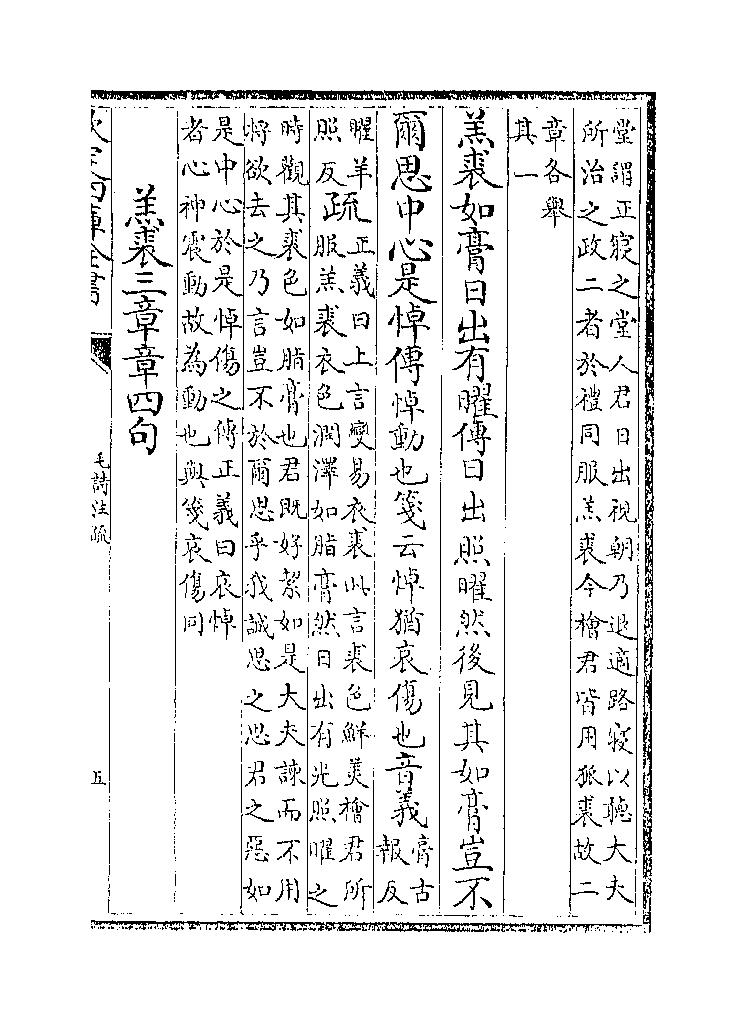 堂謂正寢之堂人君日出視朝乃退適路寢以聽大夫
所治之政二者於禮同服羔裘今檜君皆用狐裘故二
章各舉
其一
羔裘如膏日出有曜傳日出照曜然後見其如膏豈不
爾思中心是悼傳悼動也箋云悼猶哀傷也音義膏古
報反
曜羊
照反疏正義曰上言變易衣裘此言裘色鮮美檜君所
服羔裘衣色潤澤如脂膏然日出有光照曜之
時觀其裘色如脂膏也君既好絜如是大夫諫而不用
將欲去之乃言豈不於爾思乎我誠思之思君之惡如
是中心於是悼傷之傳正義曰哀悼
者心神震動故為動也與箋哀傷同
羔裘三章章四句
欽定四庫全書
毛詩注疏
五